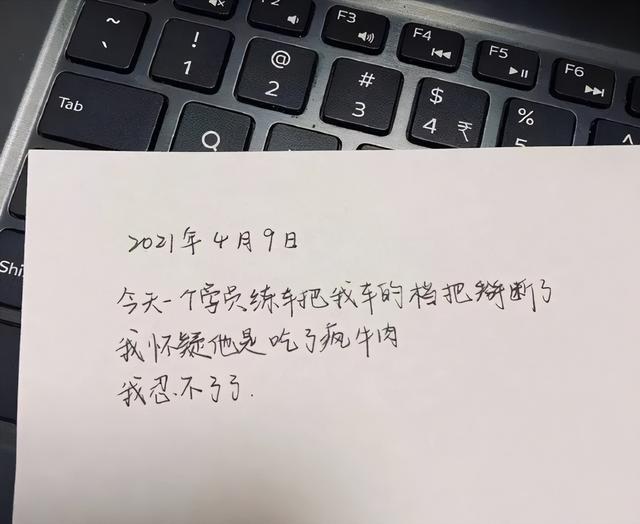 ~
`
!
1
F2
F3
F4
F5
F6
@
2
#
3
$
4 ₹
%
5
^
Tab
Q
Shi
2021年4月9日
今天一个学员练车把我车的档把掰断了
我怀疑他是吃了疯牛肉
我忍不了了.